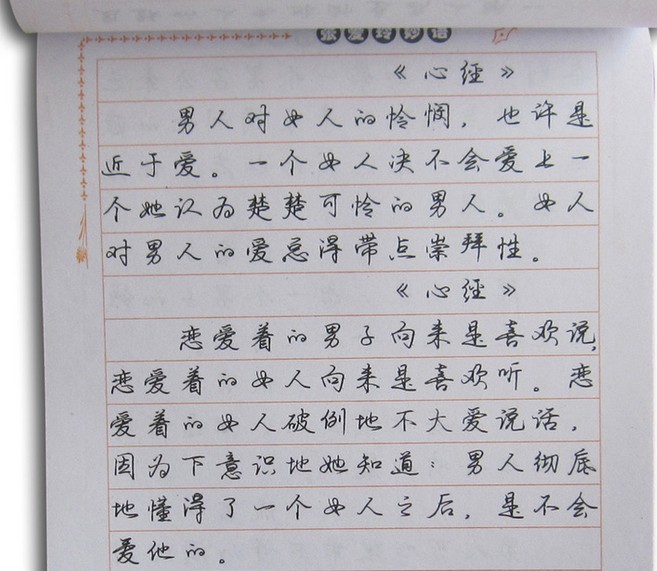 张爱玲妙语
《心经》
男人对女人的怜悯，也许是
近于爱。一个女人决不会爱上一
个她认为楚楚可怜的男人。女人
对男人的爱总得带点崇拜性。
《心经》
恋爱着的男子向来是喜欢说，
恋爱着的女人向来是喜欢听。恋
爱着的女人破例地不大爱说话，
因为下意识地她知道：男人彻底
地懂得了一个女人之后，是不会
爱他的。